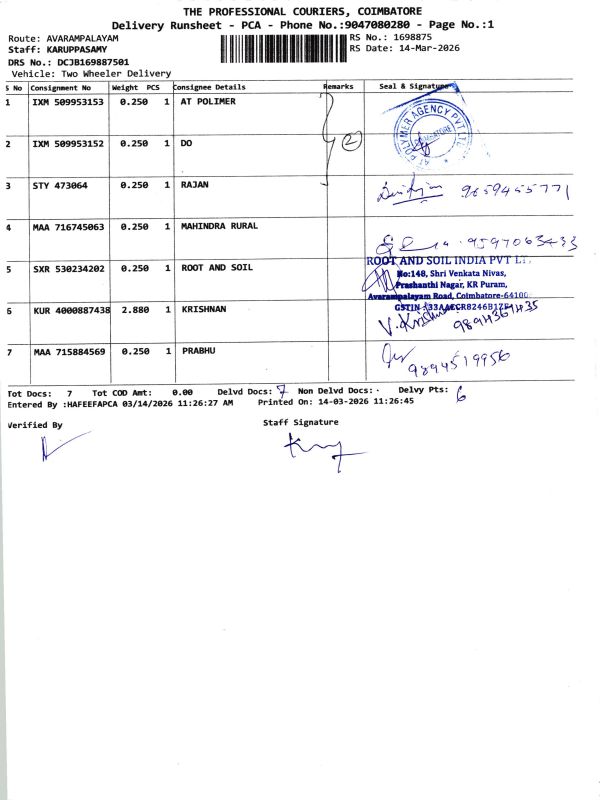 THE PROFESSIONAL COURIERS, COIMBATORE
Delivery Runsheet - PCA - Phone No.:9047080280 - Page No.:1
Route: AVARAMPALAYAM RS No.: 1698875
Staff: KARUPPASAMY RS Date: 14-Mar-2026
DRS No.: DCJB169887501
Vehicle: Two Wheeler Delivery
S No Consignment No Weight PCS Consignee Details Remarks Seal & Signature
1 IXM 509953153 0.250 1 AT POLIMER
AT POLYMER AGENCY PVT LTD
COIMBATORE
2 IXM 509953152 0.250 1 DO 2
3 STY 473064 0.250 1 RAJAN 9659455771
4 MAA 716745063 0.250 1 MAHINDRA RURAL 9597063433
5 SXR 530234202 0.250 1 ROOT AND SOIL
ROOT AND SOIL INDIA PVT LT.
No:148, Shri Venkata Nivas,
Prashanthi Nagar, KR Puram,
Avarampalayam Road, Coimbatore-64100
GSTIN :33AAECR8246B1Z
6 KUR 4000887438 2.880 1 KRISHNAN V. Krishnan 9894367435
7 MAA 715884569 0.250 1 PRABHU 9894519956
Tot Docs: 7 Tot COD Amt: 0.00 Delvd Docs: 7 Non Delvd Docs: Delvy Pts: 6
Entered By :HAFEEFAPCA 03/14/2026 11:26:27 AM Printed On: 14-03-2026 11:26:45
Verified By Staff Signature